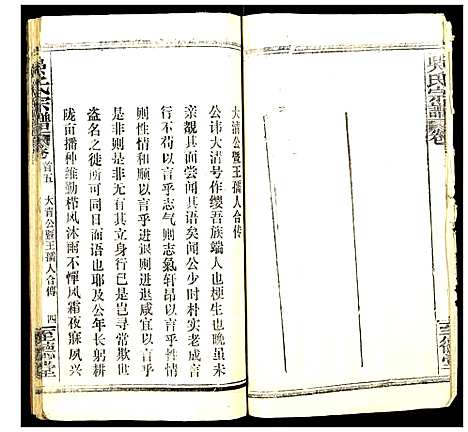 吳氏宗譜
卷
至德堂
大清公暨王孺人合传
公讳大清号作缨吾族端人也梗生也晚虽未
亲觌其面尝闻其语矣闻公少时朴实老成言
行不苟以言乎志气则志氣轩昂以言乎性情
则性情和以言乎进退则进退咸宜以言乎
是非则是非无有其立身行已是岂寻常欺世
盗名之徒所可同日而语也耶及公年长躬耕
陇亩播种维勤栉风沐雨不惮风霜夜寐夙兴
吳氏宗譜
卷
首五
大清公暨王孺人合傳
四
至德堂